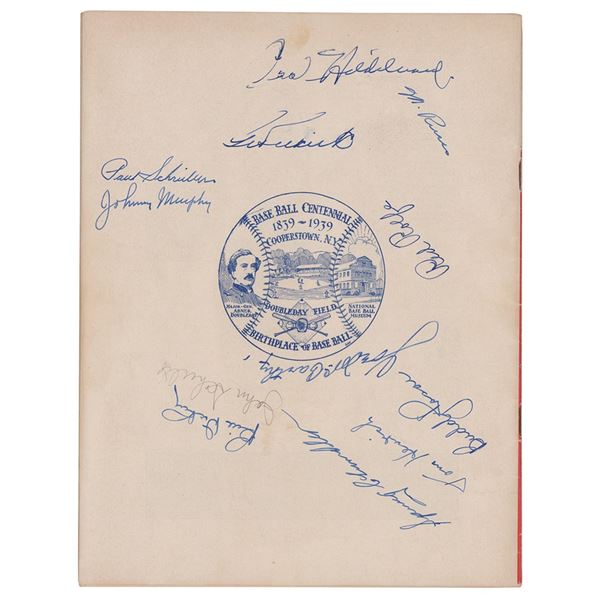 Oral Hildebrand
Bill Dickey
Paul Schreiber
Johnny Murphy
Red Rolfe
BASE BALL CENTENNIAL
1839~1939
COOPERSTOWN, N.Y.
MAJOR-GEN. ABNER DOUBLEDAY
DOUBLEDAY FIELD
NATIONAL BASE BALL MUSEUM
BIRTHPLACE OF BASE BALL
Joe McCarthy
Buddy Rosar
Tom Henrich
John Schulte
Spurgeon Chandler